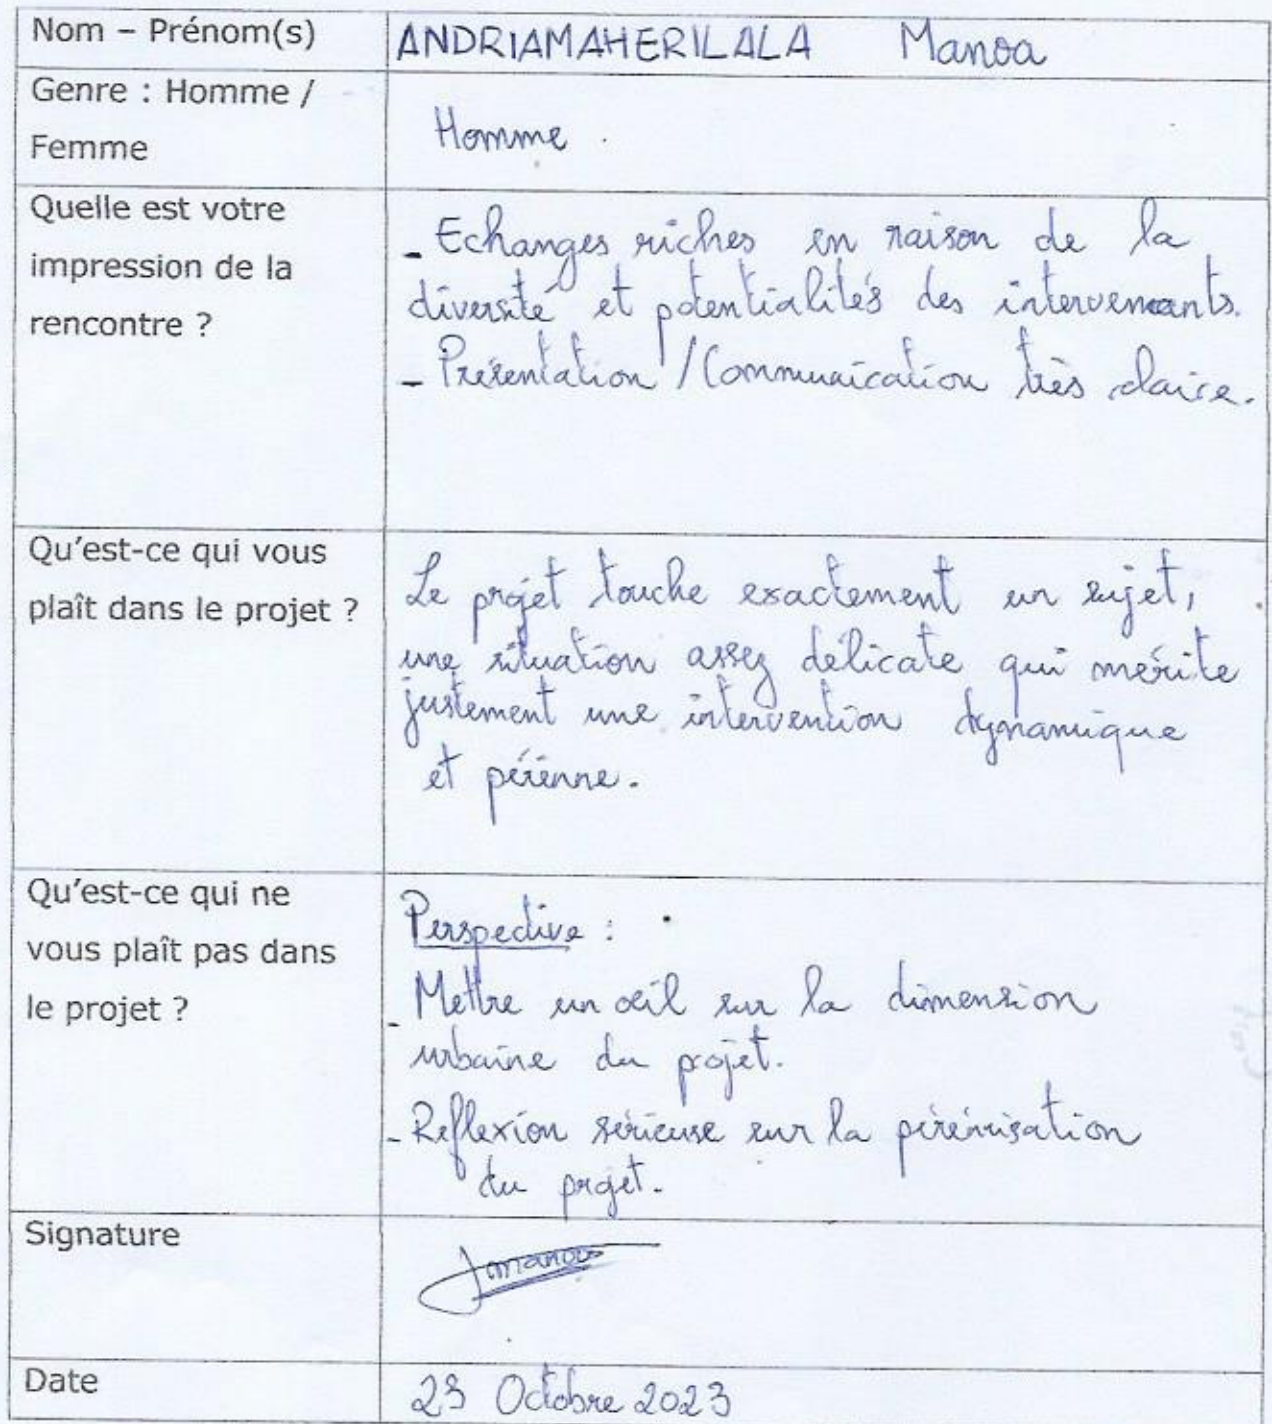 Nom – Prénom(s)
ANDRIAMAHERILALA Manoa
Genre : Homme /
Femme
Homme.
Quelle est votre
impression de la
rencontre ?
- Echanges riches en raison de la
diversité et potentialités des intervenants.
- Présentation / Communication très claire.
Qu'est-ce qui vous
plaît dans le projet ?
Le projet touche exactement un sujet,
une situation assez délicate qui mérite
justement une intervention dynamique
et pérenne.
Qu'est-ce qui ne
vous plaît pas dans
le projet ?
Perspective :
- Mettre un œil sur la dimension
urbaine du projet.
- Reflexion sérieuse sur la pérénisation
du projet.
Signature
manoa
Date
Octobre 2023